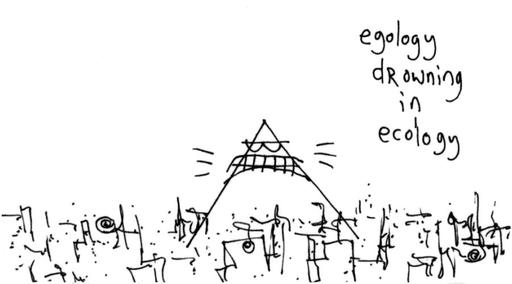 egology
dRowning
in
ecology